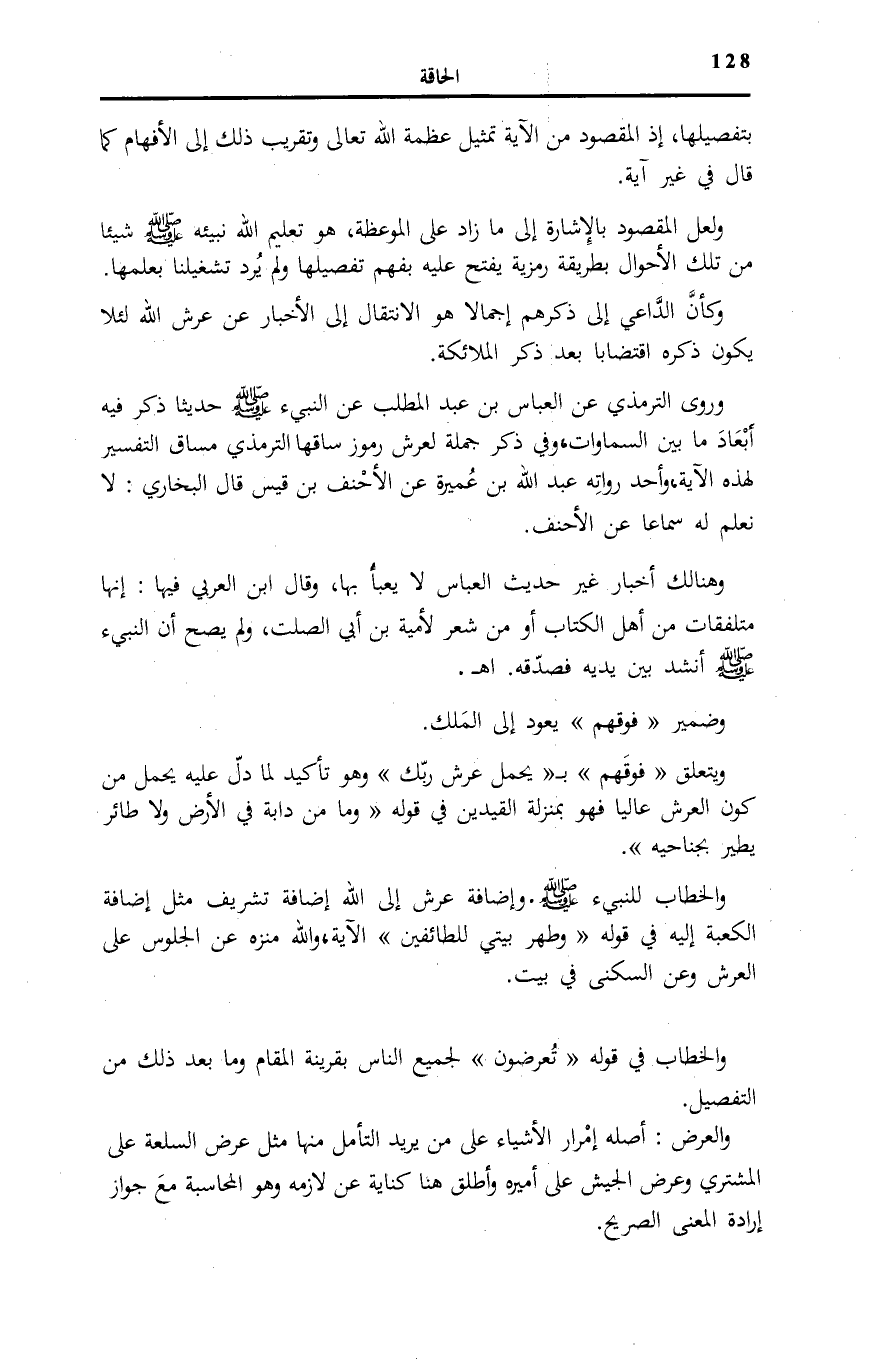 128
الحاقة
بتفصيلها، إذ المقصود من الآية تمثيل عظمة الله تعالى وتقريب ذلك إلى الأفهام كما
قال في غير آية.
ولعل المقصود بالإشارة إلى ما زاد على الموعظة، هو تعليم الله نبيئه ﷺ شيئا
من تلك الأحوال بطريقة رمزية يفتح عليه بفهم تفصيلها ولم يُرد تشغيلنا بعلمها.
وكأنَّ الدَّاعي إلى ذكرهم إجمالا هو الانتقال إلى الأخبار عن عرش الله لئلا
يكون ذكره اقتضابا بعد ذكر الملائكة.
وروى الترمذي عن العباس بن عبد المطلب عن النبيء ﷺ حديثا ذكر فيه
أبْعَادَ ما بين السماوات، وفي ذكر جملة لعرش رموز ساقها الترمذي مساق التفسير
لهذه الآية، وأحد رواتِه عبد الله بن عُميرة عن الأحْنف بن قيس قال البخاري : لا
نعلم له سماعا عن الأحنف.
وهنالك أخبار غير حديث العباس لا يعبأُ بها، وقال ابن العربي فيها : إنها
متلفقات من أهل الكتاب أو من شعر لأمية بن أبي الصلت، ولم يصح أن النبيء
ﷺ أنشد بين يديه فصدّقه. اهـ .
وضمير « فوقهم » يعود إلى المَلك.
ويتعلق « فوقَهم » بـ« يحمل عرش ربّك » وهو تأكيد لما دلّ عليه يحمل من
كون العرش عاليا فهو بمنزلة القيدين في قوله « وما من دابة في الأرض ولا طائر
يطير بجناحيه ».
والخطاب للنبيء ﷺ. وإضافة عرش إلى الله إضافة تشريف مثل إضافة
الكعبة إليه في قوله « وطهر بيتي للطائفين » الآية، والله منزه عن الجلوس على
العرش وعن السكنى في بيت.
والخطاب في قوله « تُعرضون » لجميع الناس بقرينة المقام وما بعد ذلك من
التفصيل.
والعرض : أصله إمْرار الأشياء على من يريد التأمل منها مثل عرض السلعة على
المشتري وعرض الجيش على أميره وأطلق هنا كناية عن لازمه وهو المحاسبة معَ جواز
إرادة المعنى الصريح.